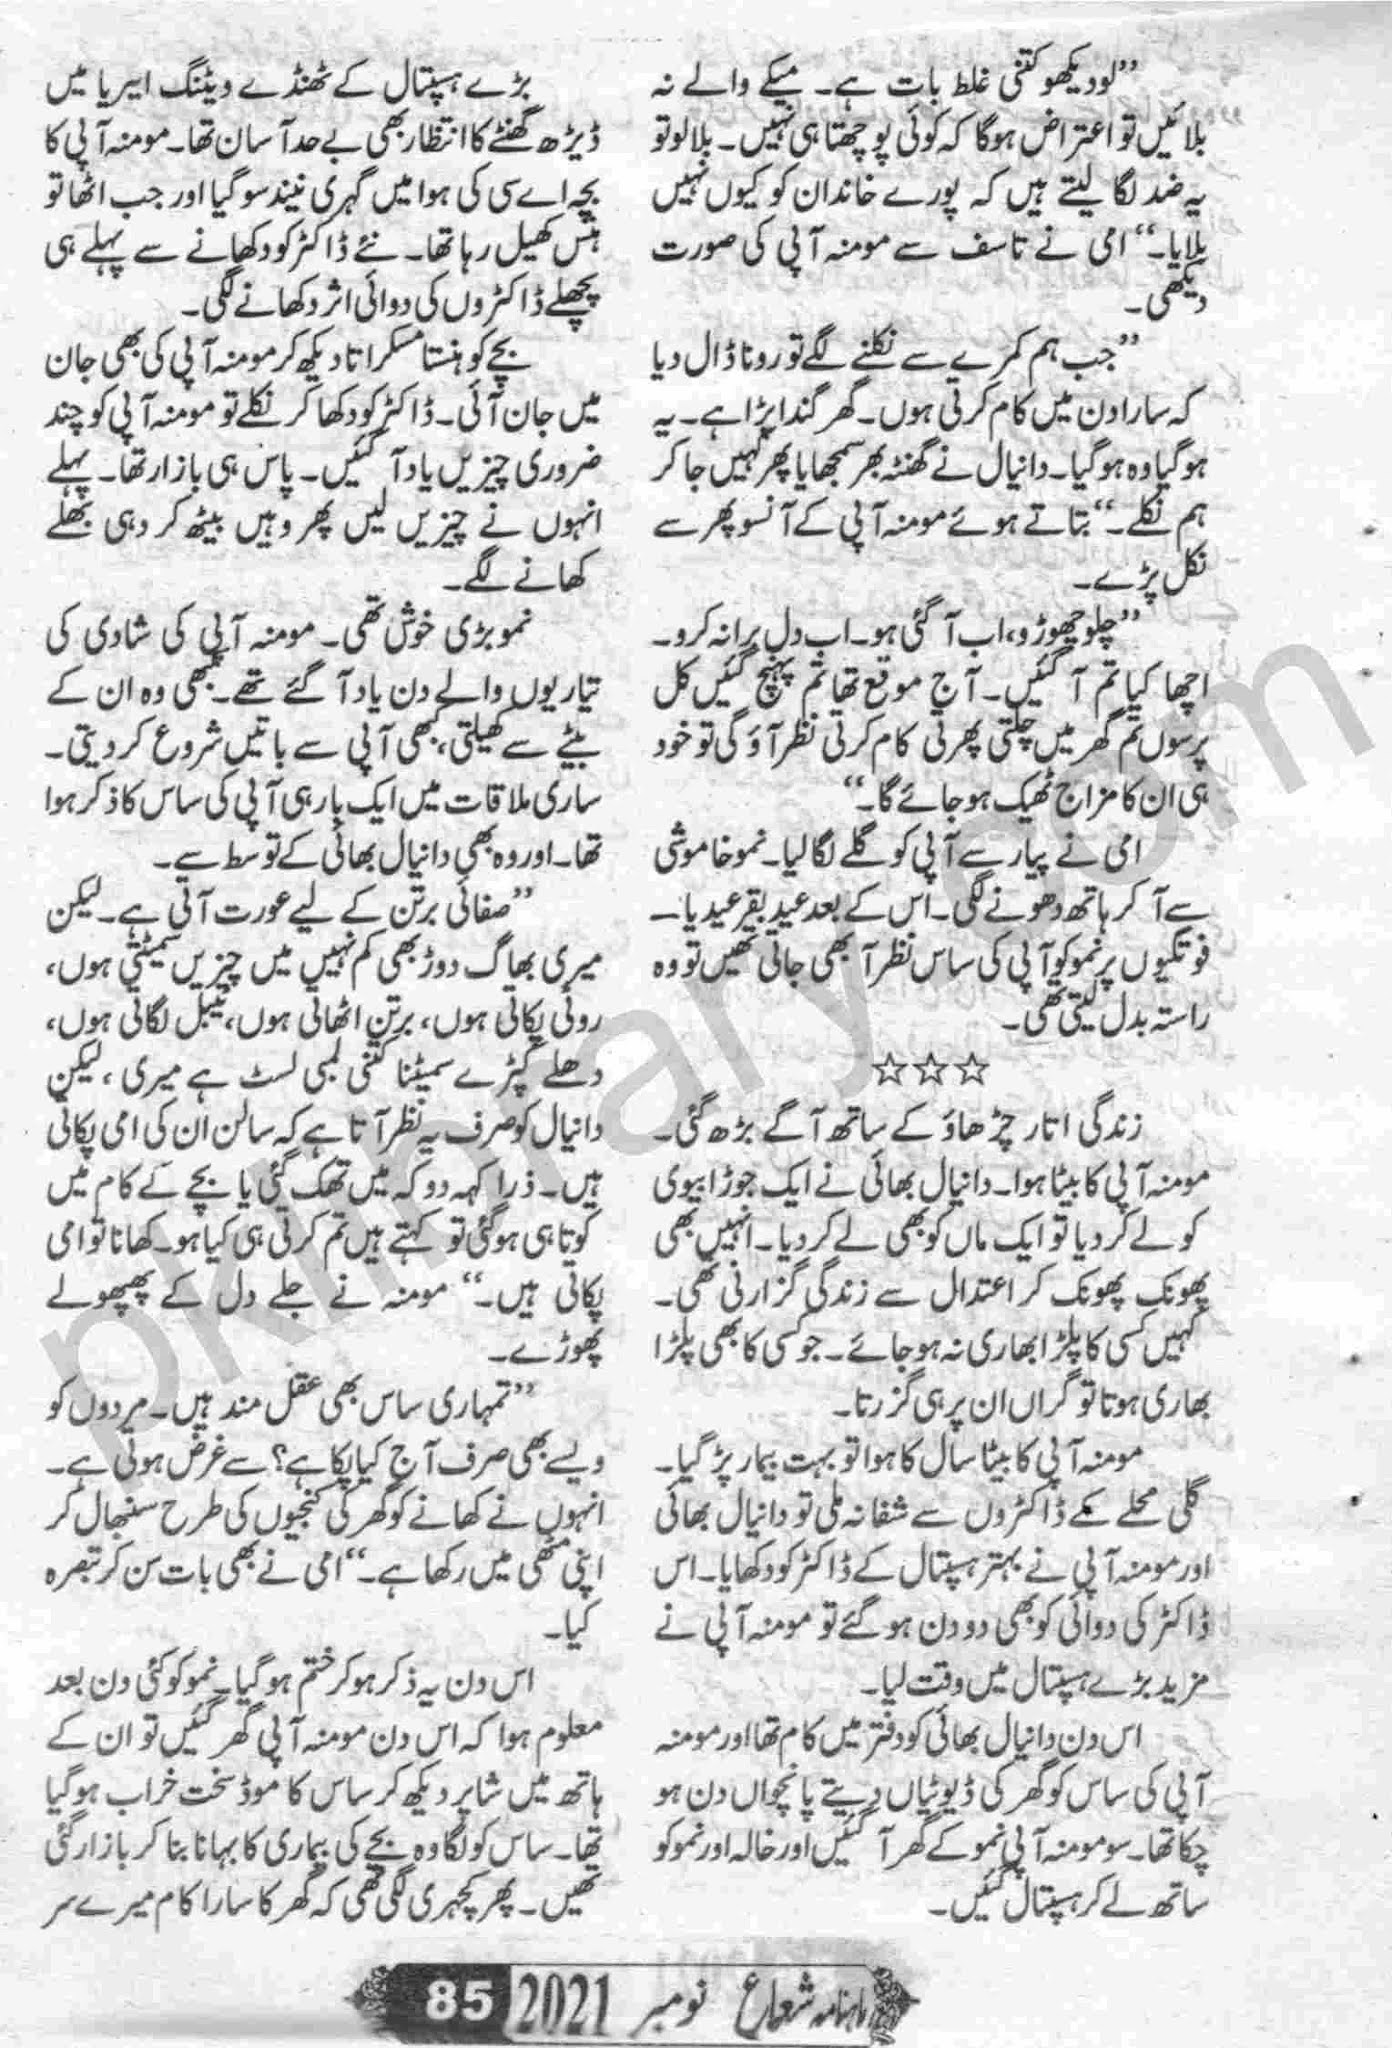 ”لو دیکھو کتنی غلط بات ہے۔ میکے والے نہ
بلائیں تو اعتراض ہوگا کہ کوئی پوچھتا ہی نہیں۔ بلا لو تو
یہ ضد لگا لیتے ہیں کہ پورے خاندان کو کیوں نہیں
بلایا۔“ امی نے تاسف سے مومنہ آپی کی صورت
دیکھی۔
”جب ہم کمرے سے نکلنے لگے تو رونا ڈال دیا
کہ سارا دن میں کام کرتی ہوں۔ گھر گندا پڑا ہے۔ یہ
ہوگیا وہ ہوگیا۔ دانیال نے گھنٹہ بھر سمجھایا پھر کہیں جا کر
ہم نکلے۔“ بتاتے ہوئے مومنہ آپی کے آنسو پھر سے
نکل پڑے۔
”چلو چھوڑو، اب آ گئی ہو۔ اب دل برا نہ کرو۔
اچھا کیا تم آ گئیں۔ آج موقع تھا تم پہنچ گئیں کل
پرسوں تم گھر میں چلتی پھرتی کام کرتی نظر آؤ گی تو خود
ہی ان کا مزاج ٹھیک ہو جائے گا۔“
امی نے پیار سے آپی کو گلے لگا لیا۔ نمو خاموشی
سے آ کر ہاتھ دھونے لگی۔ اس کے بعد عید بقر عید یا ــ
فوتگیوں پر نمو کو آپی کی ساس نظر آ بھی جاتی تھیں تو وہ
راستہ بدل لیتی تھی۔
☆☆☆
زندگی اتار چڑھاؤ کے ساتھ آگے بڑھ گئی۔
مومنہ آپی کا بیٹا ہوا۔ دانیال بھائی نے ایک جوڑا بیوی
کو لے کر دیا تو ایک ماں کو بھی لے کر دیا۔ انہیں بھی
پھونک پھونک کر اعتدال سے زندگی گزارنی تھی۔
کہیں کسی کا پلڑا بھاری نہ ہو جائے۔ جو کسی کا بھی پلڑا
بھاری ہوتا تو گراں ان پر ہی گزرتا۔
مومنہ آپی کا بیٹا سال کا ہوا تو بہت بیمار پڑ گیا۔
گلی محلے کے ڈاکٹروں سے شفا نہ ملی تو دانیال بھائی
اور مومنہ آپی نے بہتر ہسپتال کے ڈاکٹر کو دکھایا۔ اس
ڈاکٹر کی دوائی کو بھی دو دن ہو گئے تو مومنہ آپی نے
مزید بڑے ہسپتال میں وقت لیا۔
اس دن دانیال بھائی کو دفتر میں کام تھا اور مومنہ
آپی کی ساس کو گھر کی ڈیوٹیاں دیتے پانچواں دن ہو
چکا تھا۔ سو مومنہ آپی نمو کے گھر آ گئیں اور خالہ اور نمو کو
ساتھ لے کر ہسپتال گئیں۔
بڑے ہسپتال کے ٹھنڈے ویٹنگ ایریا میں
ڈیڑھ گھنٹے کا انتظار بھی بے حد آسان تھا۔ مومنہ آپی کا
بچہ اے سی کی ہوا میں گہری نیند سو گیا اور جب اٹھا تو
ہنس کھیل رہا تھا۔ نئے ڈاکٹر کو دکھانے سے پہلے ہی
پچھلے ڈاکٹروں کی دوائی اثر دکھانے لگی۔
بچے کو ہنستا مسکراتا دیکھ کر مومنہ آپی کی بھی جان
میں جان آئی۔ ڈاکٹر کو دکھا کر نکلے تو مومنہ آپی کو چند
ضروری چیزیں یاد آ گئیں۔ پاس ہی بازار تھا۔ پہلے
انہوں نے چیزیں لیں پھر وہیں بیٹھ کر دہی بھلے
کھانے لگے۔
نمو بڑی خوش تھی۔ مومنہ آپی کی شادی کی
تیاریوں والے دن یاد آ گئے تھے۔ کبھی وہ ان کے
بیٹے سے کھیلتی، کبھی آپی سے باتیں شروع کر دیتی۔
ساری ملاقات میں ایک بار ہی آپی کی ساس کا ذکر ہوا
تھا۔ اور وہ بھی دانیال بھائی کے توسط سے۔
”صفائی برتن کے لیے عورت آتی ہے۔ لیکن
میری بھاگ دوڑ بھی کم نہیں میں چیزیں سمیٹتی ہوں،
روٹی پکاتی ہوں، برتن اٹھاتی ہوں، ٹیبل لگاتی ہوں،
دھلے کپڑے سمیٹنا کتنی لمبی لسٹ ہے میری، لیکن
دانیال کو صرف یہ نظر آتا ہے کہ سالن ان کی امی پکاتی
ہیں۔ ذرا کہہ دو کہ میں تھک گئی یا بچے کے کام میں
کوتاہی ہو گئی تو کہتے ہیں تم کرتی ہی کیا ہو۔ کھانا تو امی
پکاتی ہیں۔“ مومنہ نے جلے دل کے پھپھولے
پھوڑے۔
”تمہاری ساس بھی عقل مند ہیں۔ مردوں کو
ویسے بھی صرف آج کیا پکا ہے؟ سے غرض ہوتی ہے۔
انہوں نے کھانے کو گھر کی کنجیوں کی طرح سنبھال کر
اپنی مٹھی میں رکھا ہے۔“ امی نے بھی بات سن کر تبصرہ
کیا۔
اس دن یہ ذکر ہو کر ختم ہو گیا۔ نمو کو کئی دن بعد
معلوم ہوا کہ اس دن مومنہ آپی گھر گئیں تو ان کے
ہاتھ میں شاپر دیکھ کر ساس کا موڈ سخت خراب ہو گیا
تھا۔ ساس کو لگا وہ بچے کی بیماری کا بہانا بنا کر بازار گئی
تھیں۔ پھر کچہری لگی تھی کہ گھر کا سارا کام میرے سر
ماہنامہ شعاع نومبر 2021 85
pklibrary.com